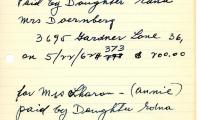 Paid by Daughter
Mrs Doernberg
3695 Gardner Lane 36,
on 5/ 373 700.00
for Mrs Sharon - (Annie)
paid by Daughter Edna